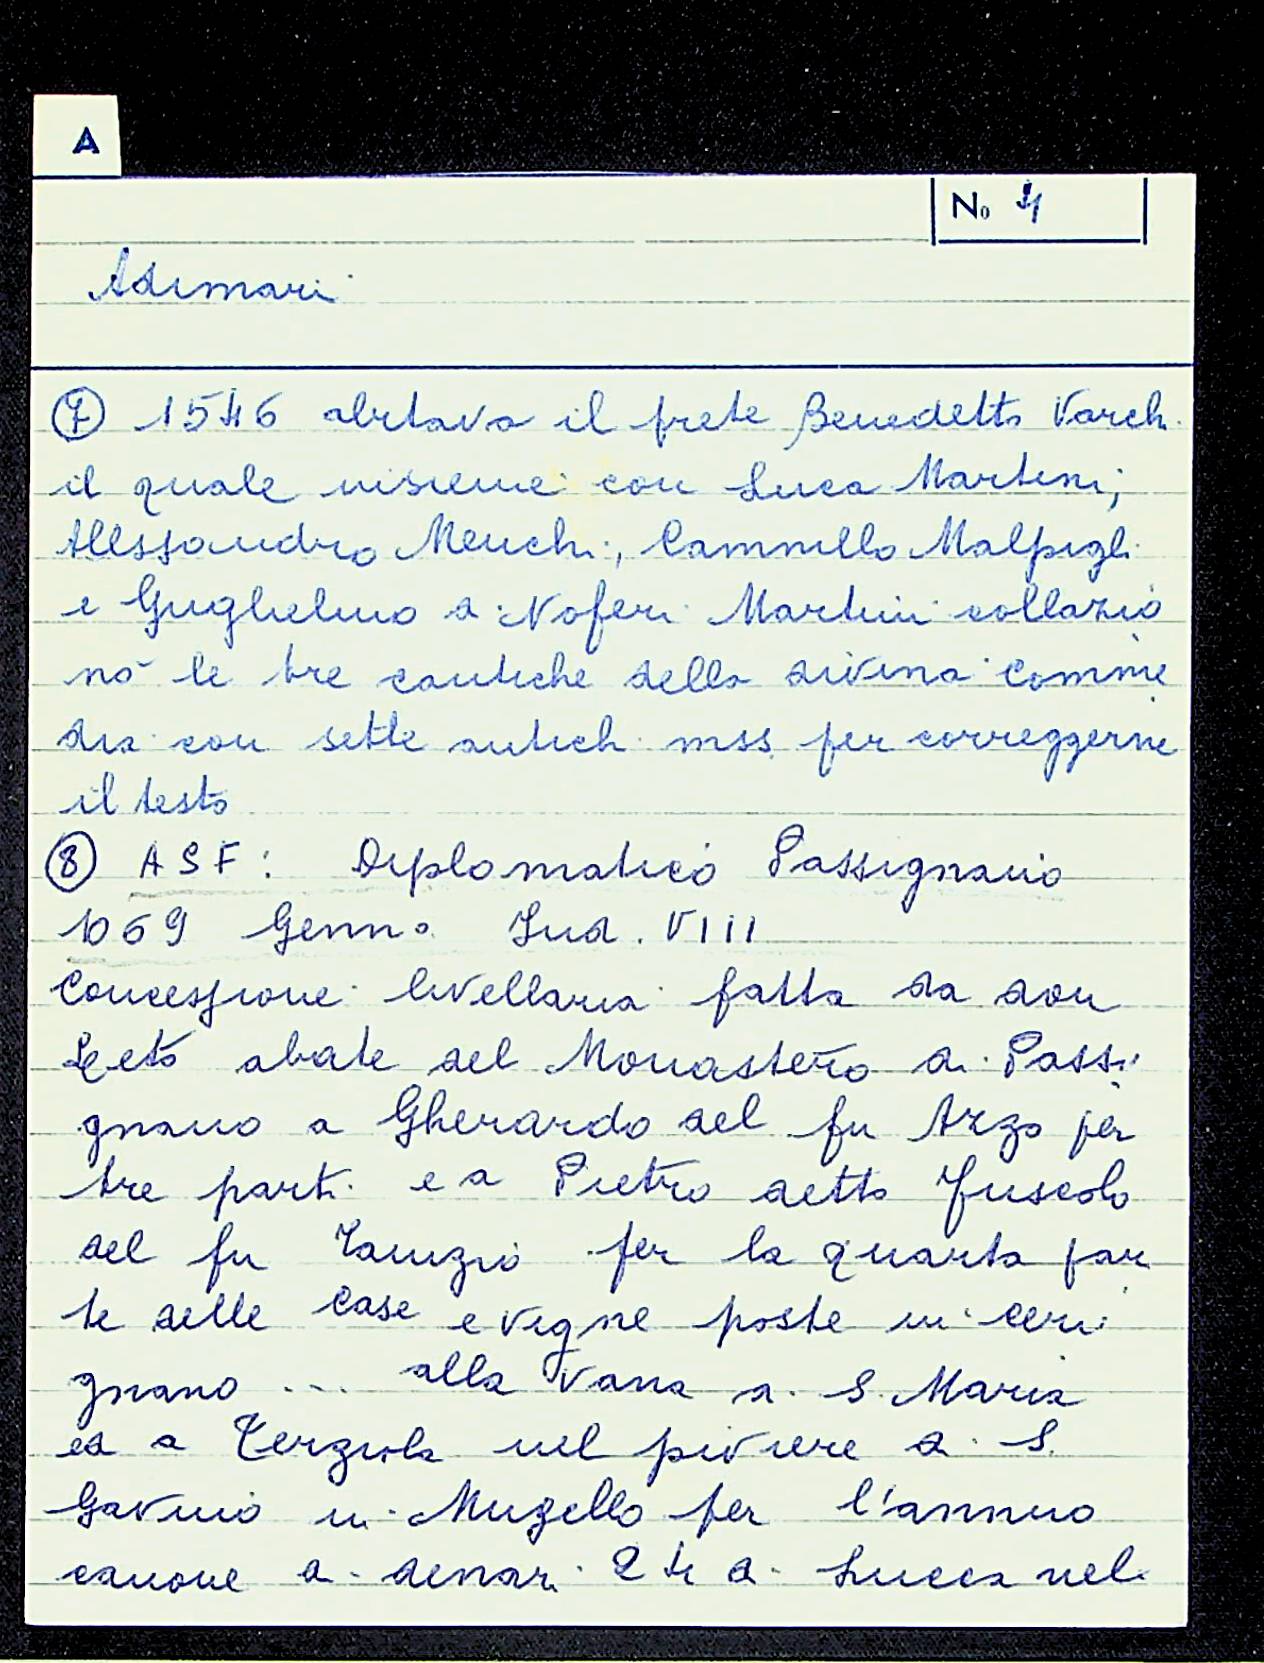 A
No 4
Adimari
7 1546 abitava il prete Benedetto Varchi
il quale insieme con Luca Martini,
Alessandro Menchi, Cammillo Malpigli
e Guglielmo di Noferi Martini collazio
nò le tre cantiche della divina comme
dia con sette antichi mss per correggerne
il testo
8 ASF: Diplomatico Passignano
1069 Genn° Ind. VIII
Concessione livellaria fatta da don
Leto abate del Monastero di Passi
gnano a Gherardo del fu Azzo per
tre parti e a Pietro detto Fuscolo
del fu per la quarta par
te delle case e vigne poste in Ceri
gnano ... alla Vana a S. Maria
ed a Terziola nel piviere di S.
Gavino in Mugello per l'annuo
canone di denari 24 di Lucca nel